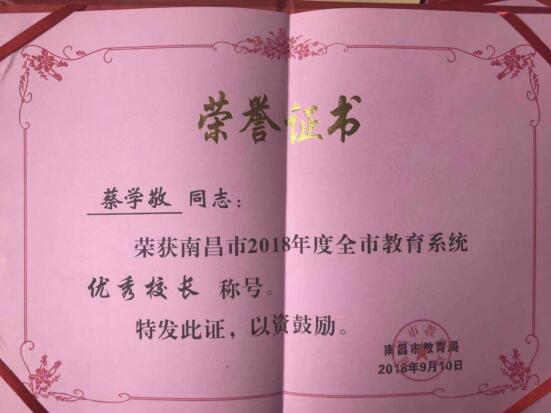 荣誉证书
蔡学敬 同志：
荣获南昌市2018年度全市教育系统
优秀校长 称号。
特发此证，以资鼓励。
南昌市教育局
2018年9月10日